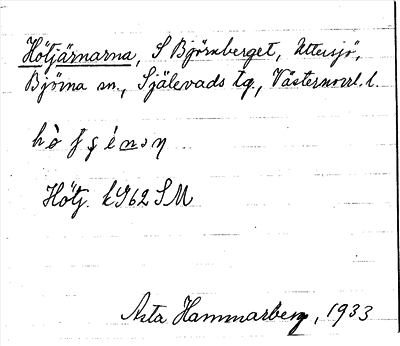 Hötjärnarna, S Björnberget, Uttersjö,
Björna sn., Själevads tg., Västernorrl. l.
Hötj. k 962 SM
Asta Hammarberg, 1933